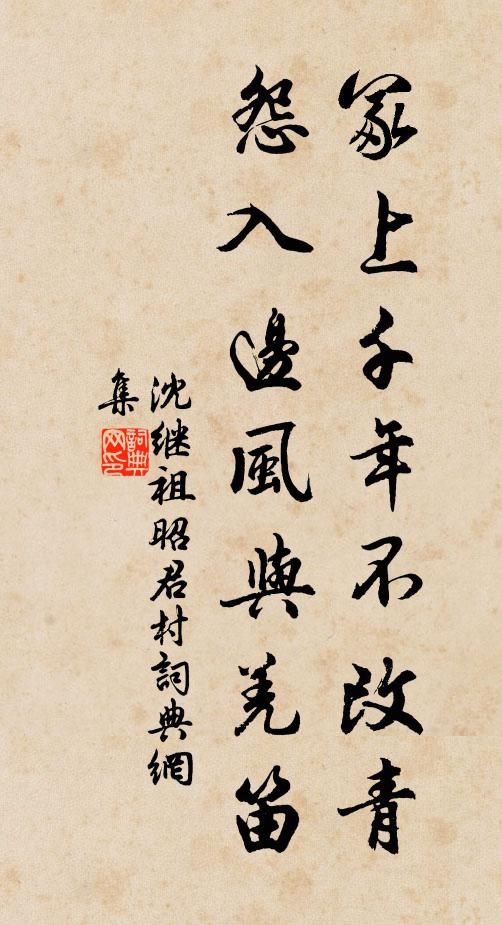 冢上千年不改青
怨入邊風與羌笛
沈继祖昭君村詞典網
集
詞典
网印